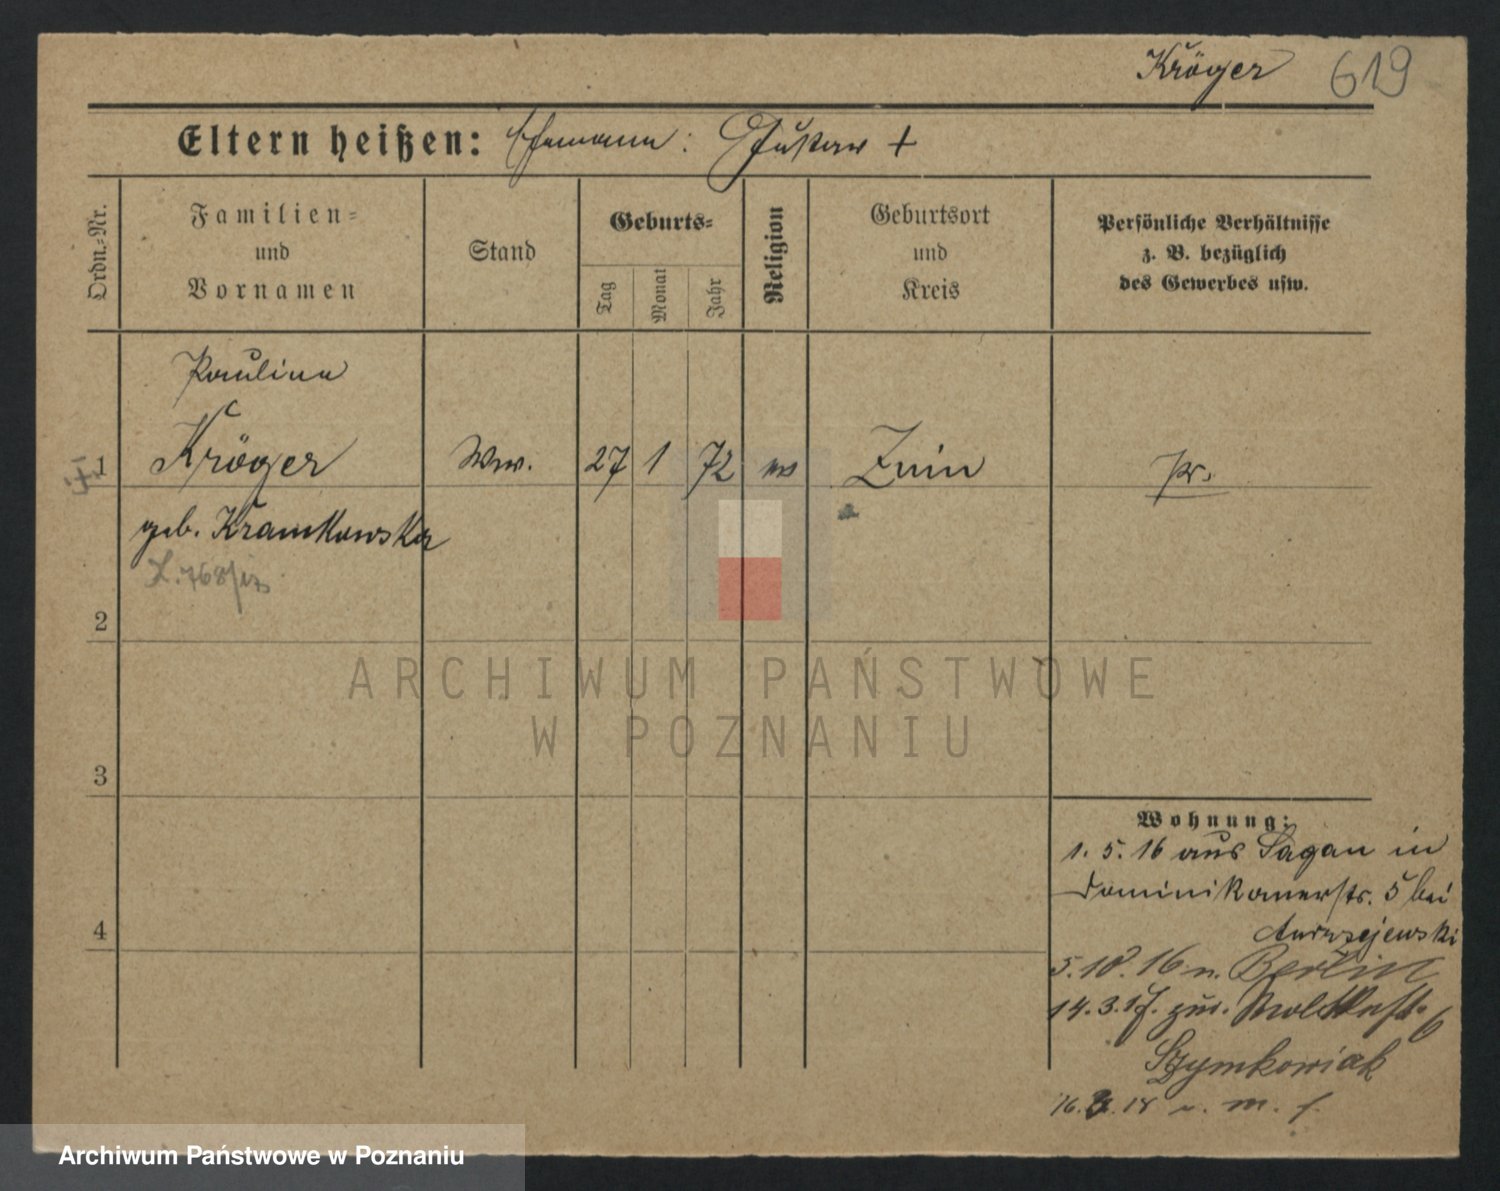 Kröger 619
Eltern heißen: Ehemann: Gustav +
Ordn.=Nr.
Familien=
und
Vornamen
Stand
Geburts=
Tag
Monat
Jahr
Religion
Geburtsort
und
Kreis
Persönliche Verhältnisse
z. B. bezüglich
des Gewerbes usw.
Pauline
1 Kröger Ww. 27 1 72 Znin pr.
geb. Kramkowska
2
3
4
Wohnung:
1. 5. 16 aus Sagan in
Dominikanerstr. 5 bei
Andrzejewski
5. 10. 16 n. Berlin
14. 3. 17. zur. Moltkestr. 6
Szymkowiak
ARCHIWUM PAŃSTWOWE
W POZNANIU
Archiwum Państwowe w Poznaniu